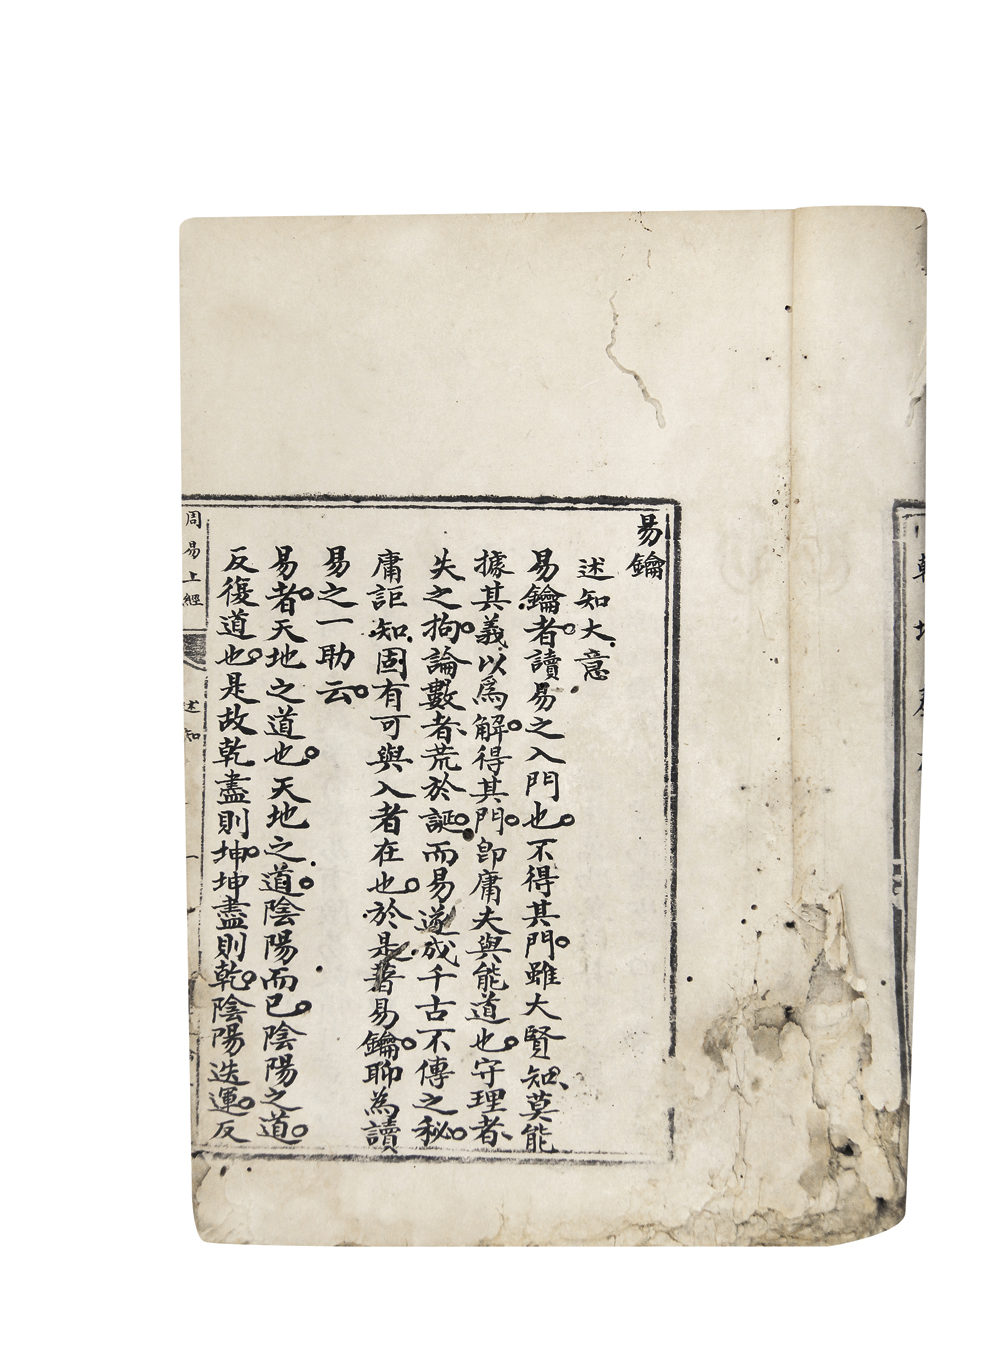 易鑰
述知大意
易鑰者。讀易之入門也。不得其門。雖大賢知、莫能
據其義以爲解。得其門。卽庸夫與能道也。守理者
失之拘。論數者荒於誕。而易遂成千古不傳之秘。
庸詎知固有可與入者在也。於是著易鑰。聊為讀
易之一助云。
易者。天地之道也。天地之道。陰陽而已。陰陽之道。
反復道也。是故乾盡則坤。坤盡則乾。陰陽迭運。反
周易上經 述知 一